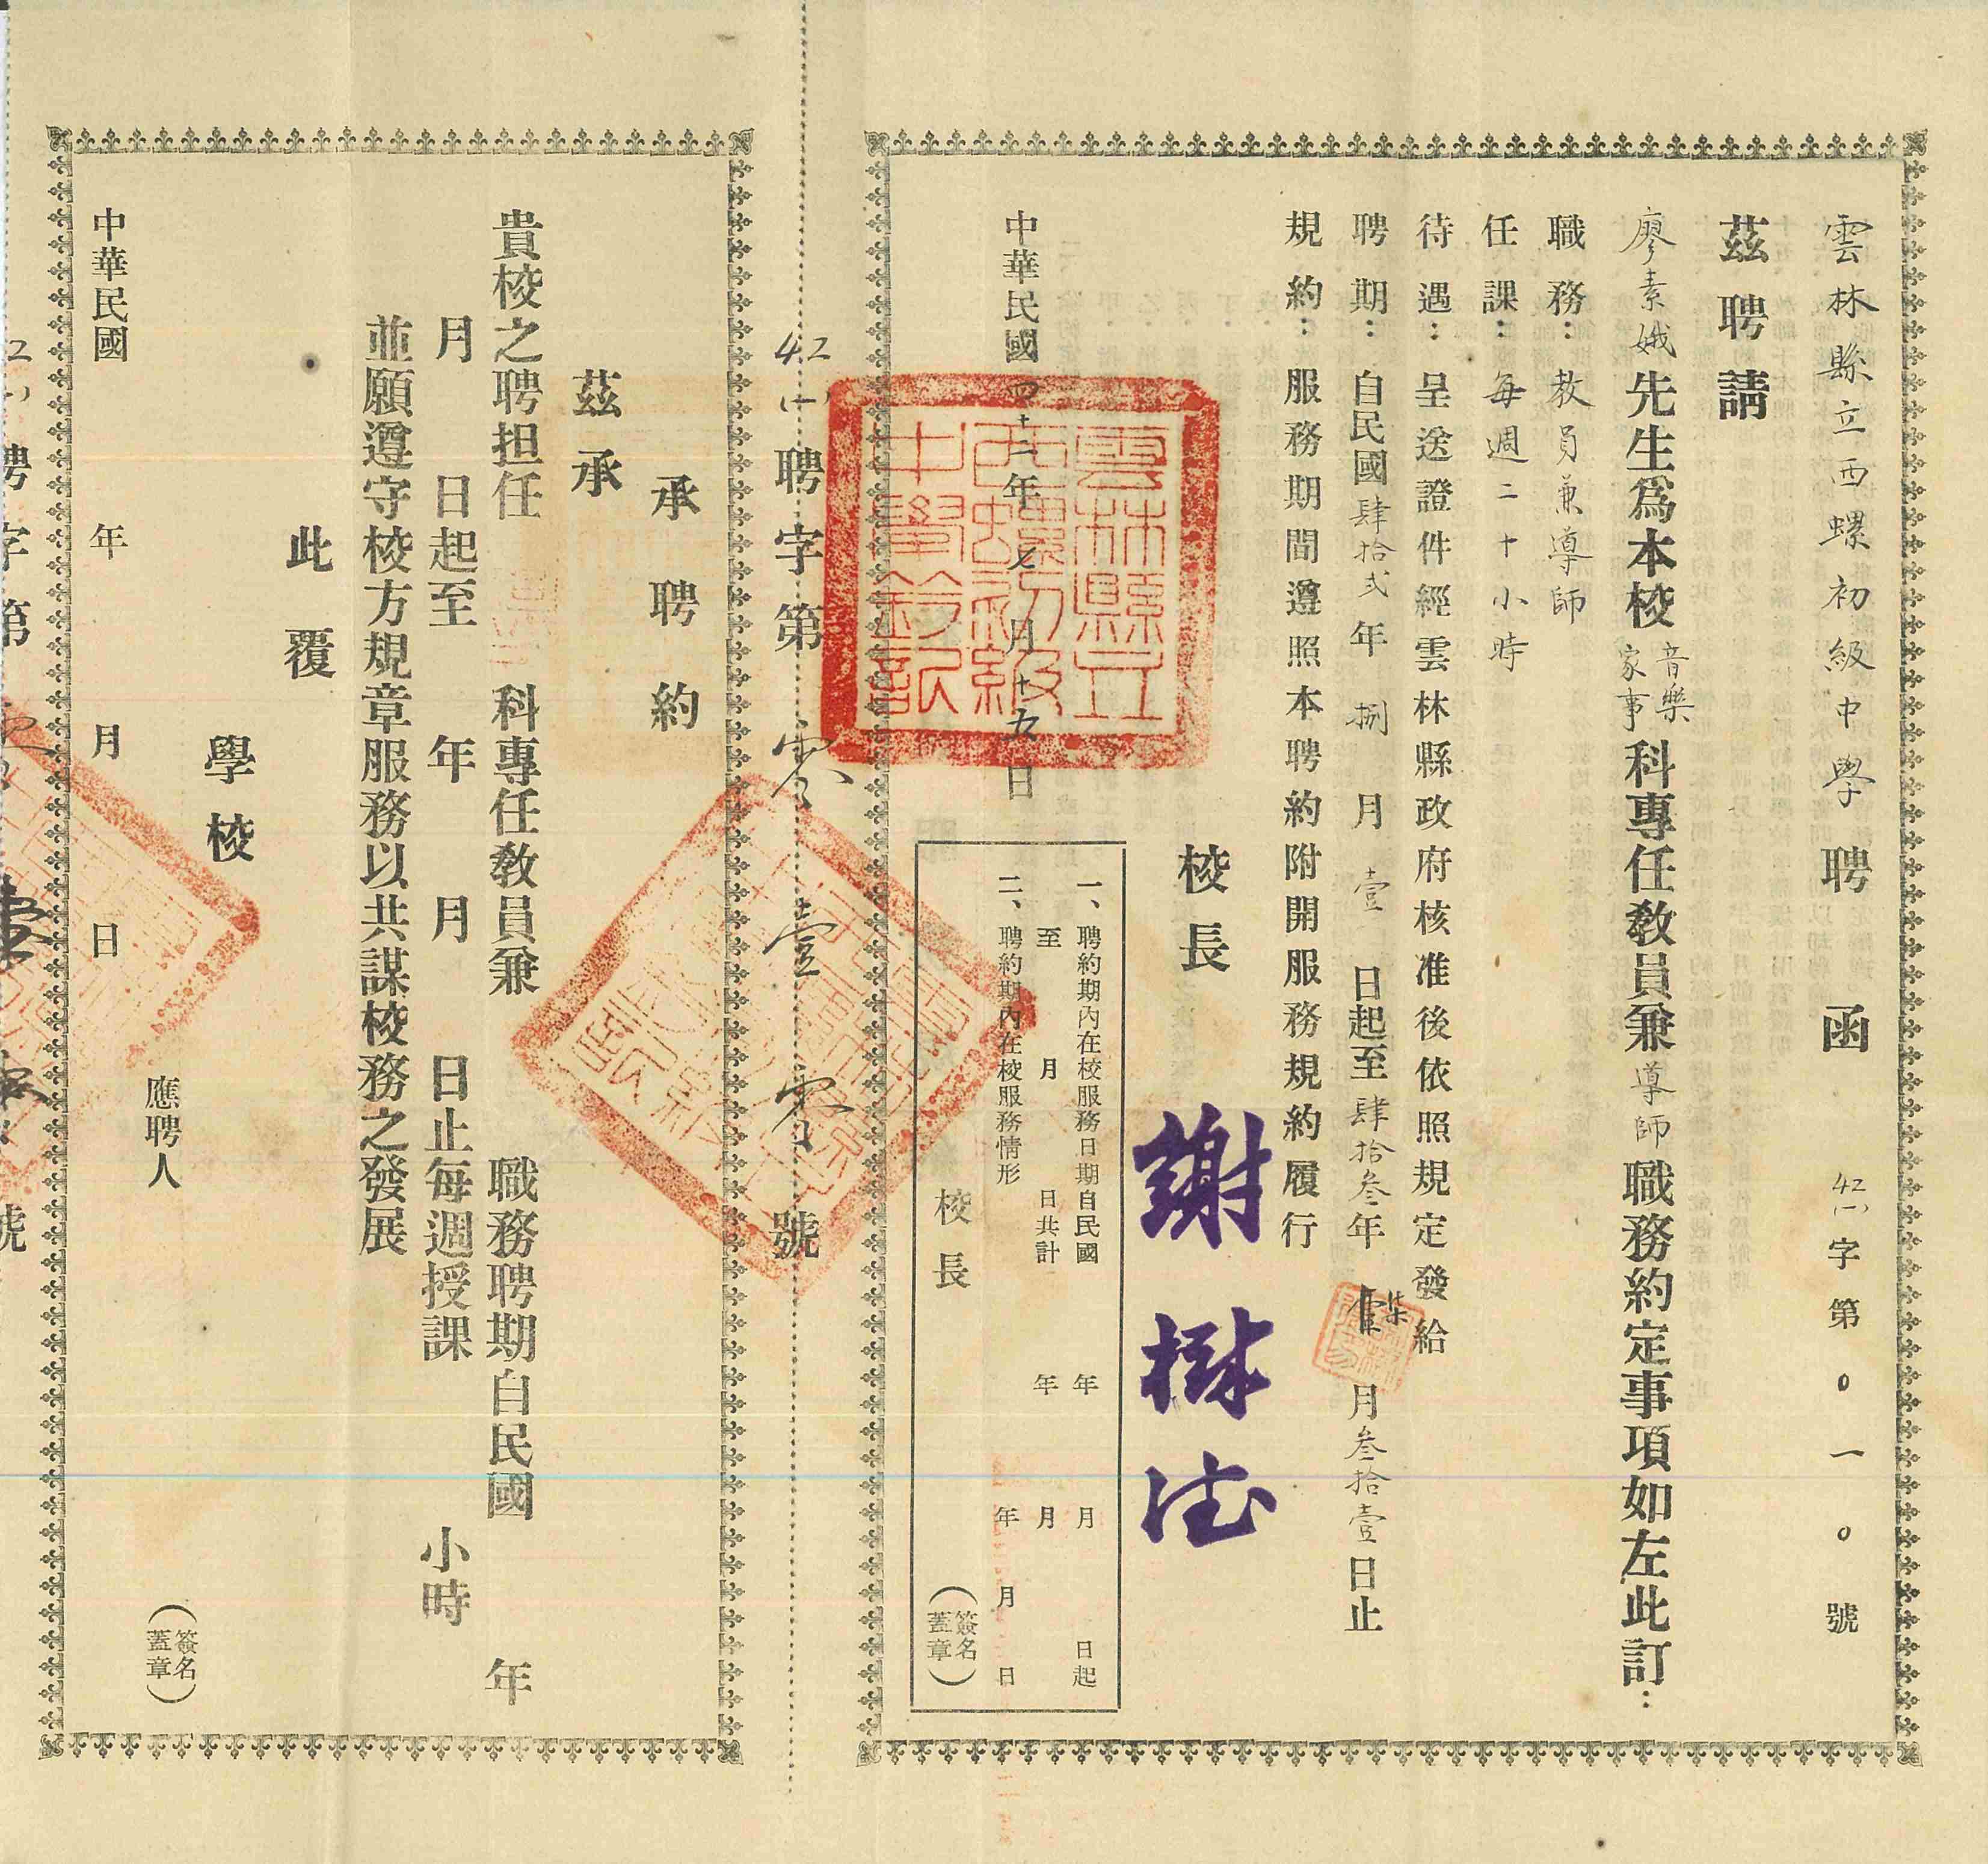 雲林縣立西螺初級中學聘函 42(一)字第0一0號
茲聘請
廖素娥先生為本校音樂家事科專任教員兼導師職務約定事項如左此訂：
職務：教員兼導師
任課：每週二十小時
待遇：呈送證件經雲林縣政府核准後依照規定發給
聘期：自民國肆拾弍年捌月壹日起至肆拾叁年柒月叁拾壹日止
規約：服務期間遵照本聘約附開服務規約履行
校長 謝樹法
一、聘約期內在校服務日期自民國 年 月 日起
至 月 日共計 年 月
二、聘約期內在校服務情形 年 月 日
校長 （簽名蓋章）
中華民國四十二年七月十五日
雲林縣立
西螺初級
中學鈐記
42(一)聘字第零壹零號
承聘約
茲承
貴校之聘担任 科專任教員兼 職務聘期自民國 年
月 日起至 年 月 日止每週授課 小時
並願遵守校方規章服務以共謀校務之發展
此覆
學校
應聘人 （簽名蓋章）
中華民國 年 月 日